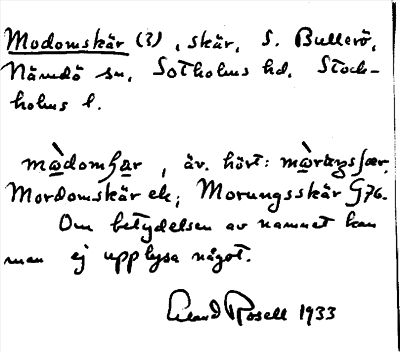 Modomskär (3), skär, S. Bullerö,
Nämdö sn, Sotholms hd, Stock-
holms l.
, äv. hört:
Mordomskär ek; Morungsskär G76.
Om betydelsen av namnet kan
man ej upplysa något.
Erland Rosell 1933